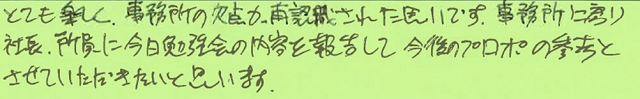 とても楽しく、事務所の欠点が再認識された思いです。事務所に戻り
社長、所員に今日勉強会の内容を報告して今後のプロポの参考と
させていただきたいと思います。